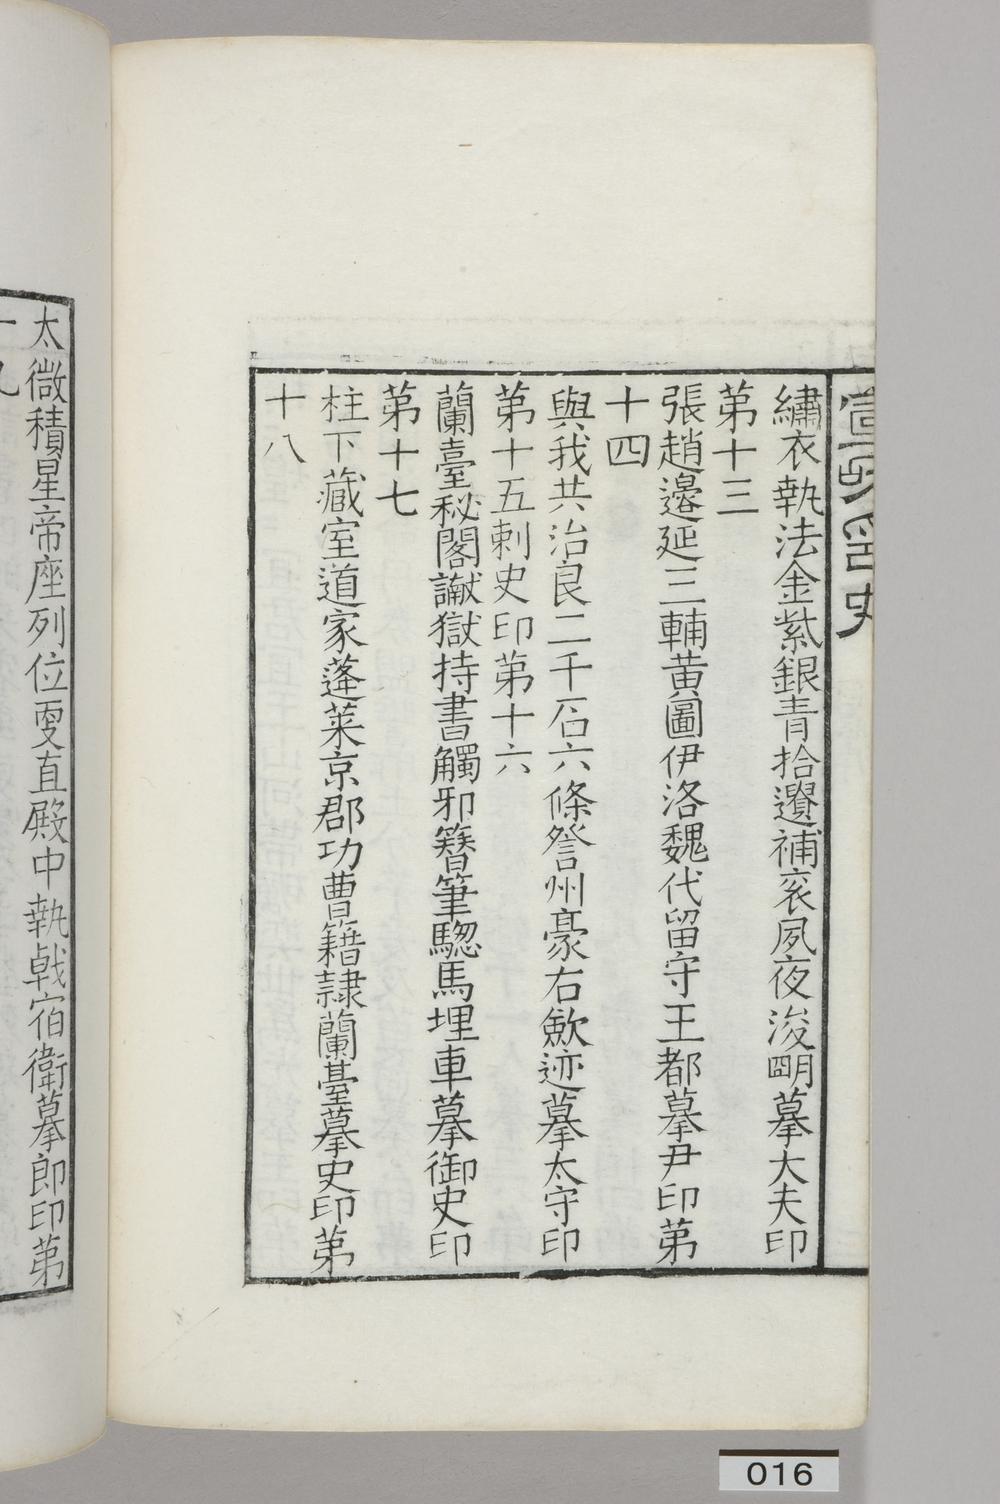 宣和印史
繡衣執法金紫銀青拾遺補衮夙夜浚明摹大夫印
第十三
張趙邊延三輔黃圖伊洛魏代留守王都摹尹印第
十四
與我共治良二千石六條詧州豪右歛迹摹太守印
第十五刺史印第十六
蘭臺秘閣讞獄持書觸邪簪筆驄馬埋車摹御史印
第十七
柱下藏室道家蓬萊京郡功曹籍隷蘭臺摹史印第
十八
太微積星帝座列位更直殿中執戟宿衛摹郎印第
十九
016